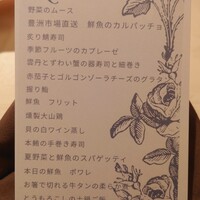 野菜のムース
豊洲市場直送 鮮魚のカルパッチョ
炙り鯖寿司
季節フルーツのカプレーゼ
雲丹とずわい蟹の器寿司と細巻き
赤茄子とゴルゴンゾーラチーズのグラタン
握り鮨
鮮魚 フリット
燻製大山鶏
貝の白ワイン蒸し
本鮪の手巻き寿司
夏野菜と鮮魚のスパゲッティ
本日の鮮魚 ポワレ
お箸で切れる牛タンの柔ら
とうもろこしの土鍋ご飯